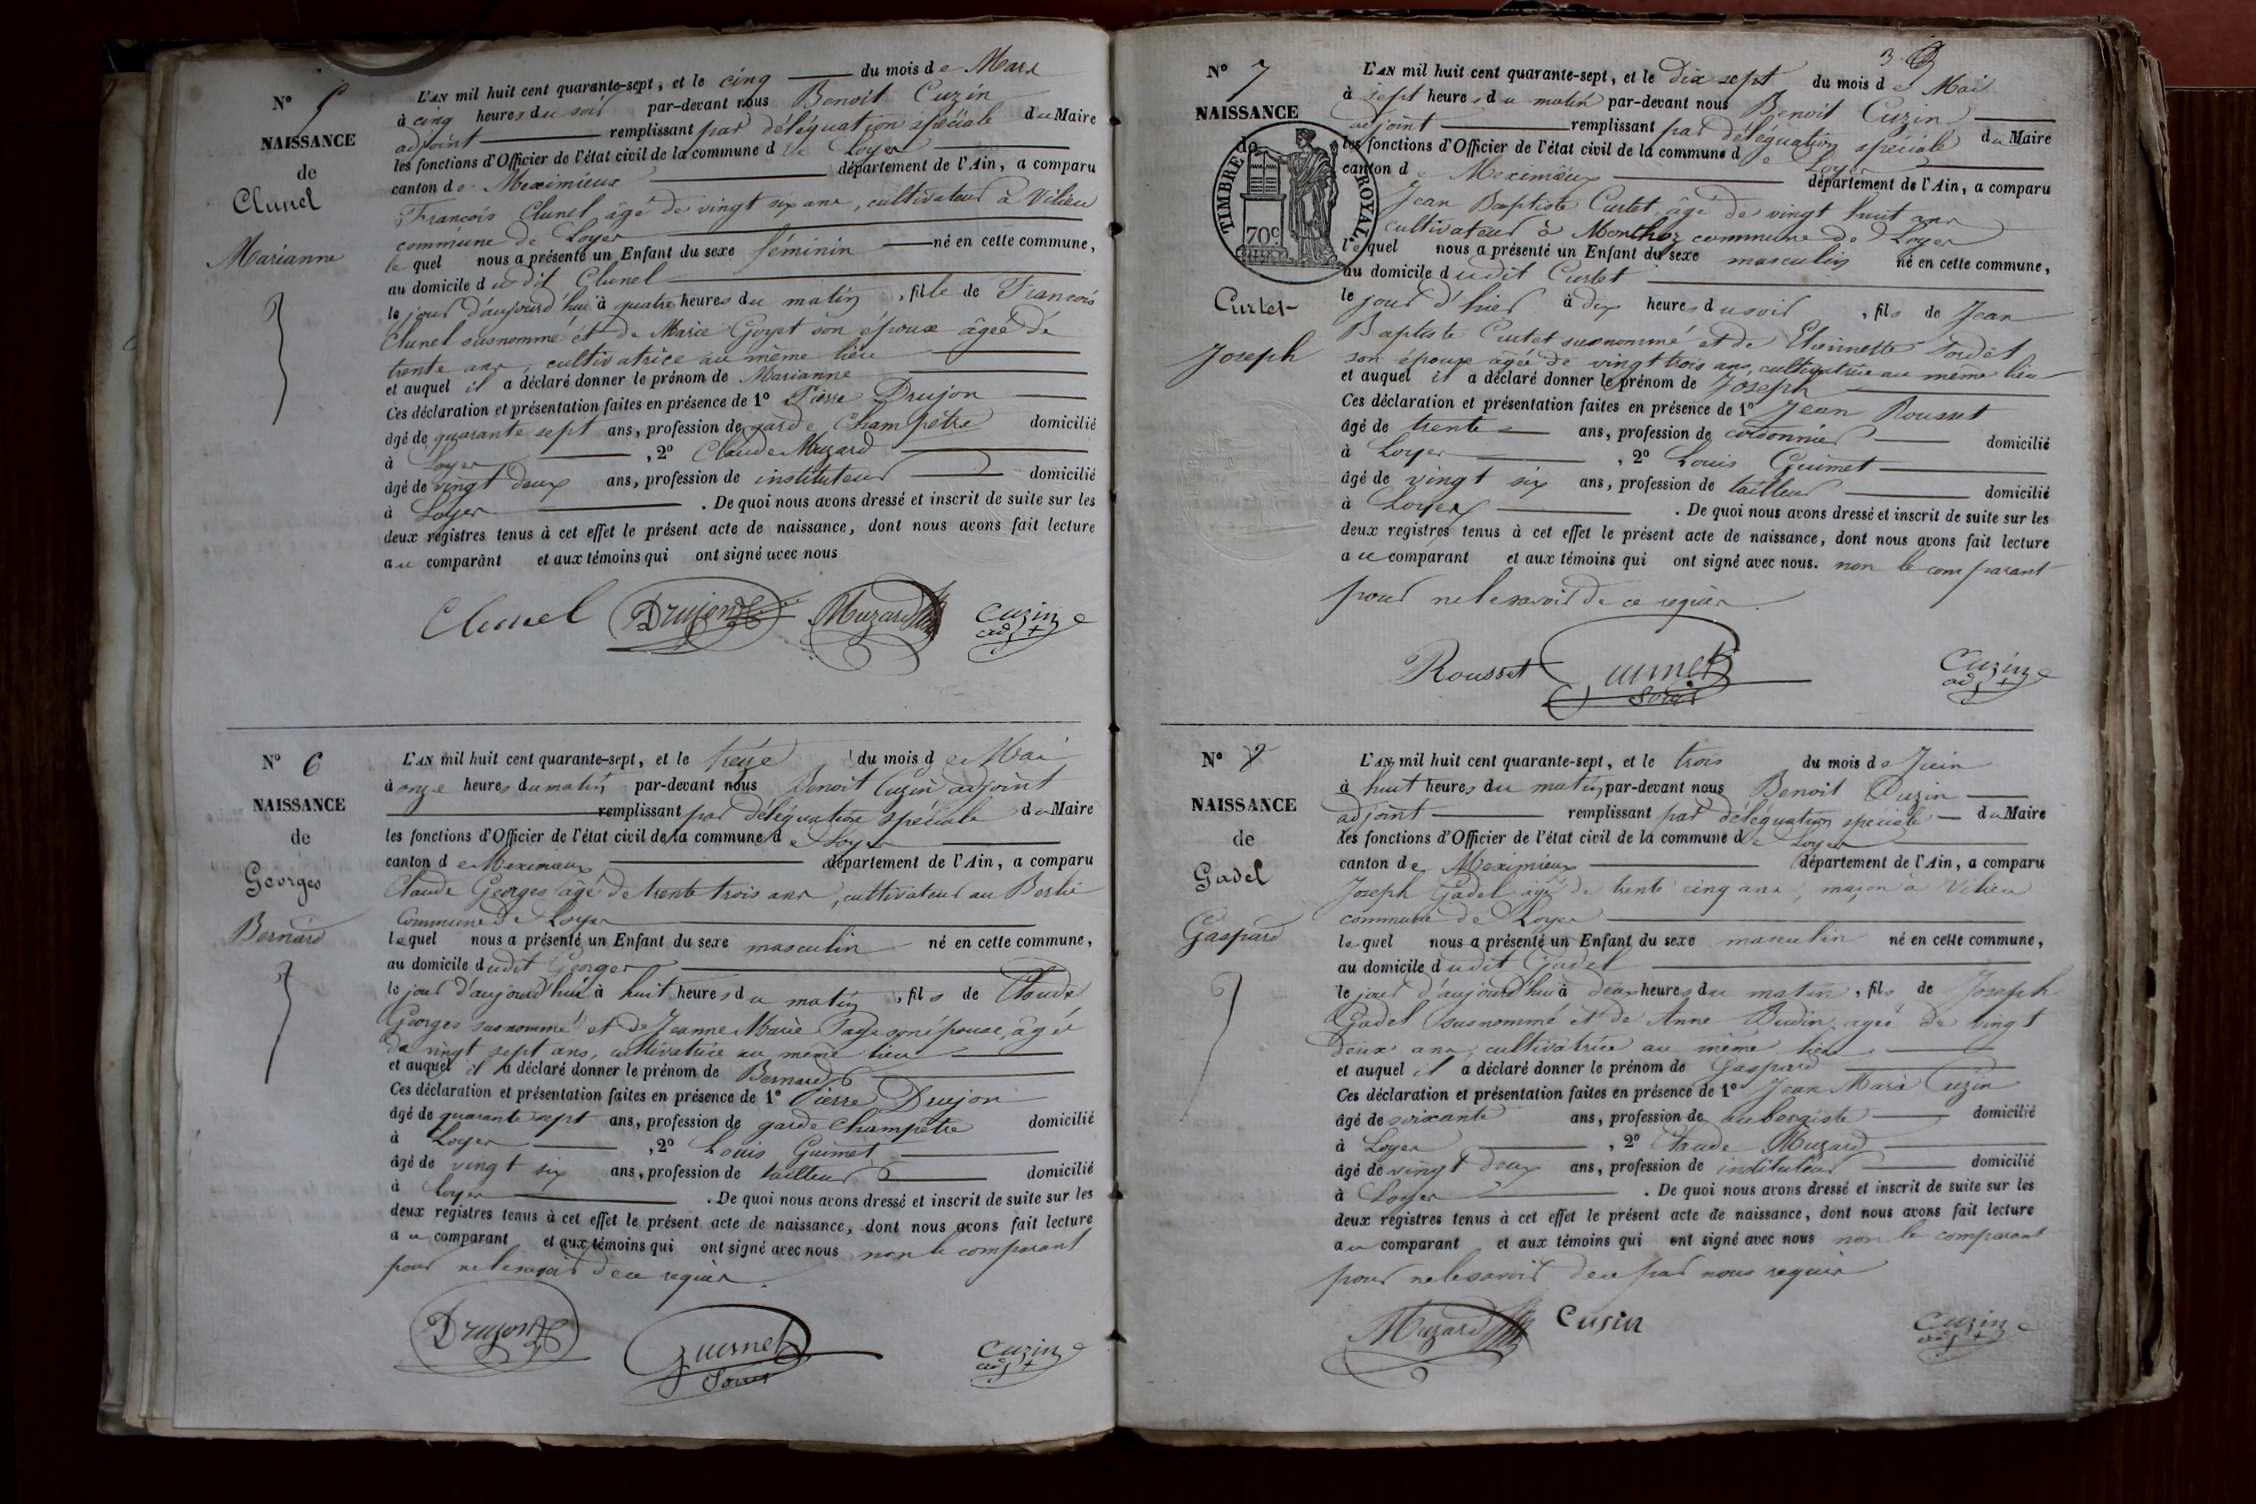 N° 5
NAISSANCE
de
Clunel
Marianne
L'AN mil huit cent quarante-sept, et le cinq du mois de Mars
à cinq heures du soir par-devant nous Benoit Cuzin
adjoint remplissant par déléguation spéciale du Maire
les fonctions d'Officier de l'état civil de la commune de Loyes
canton de Meximieux département de l'Ain, a comparu
François Clunel âgé de vingt six ans, cultivateur à Vilieu
commune de Loyes
le quel nous a présenté un Enfant du sexe féminin né en cette commune,
au domicile du dit Clunel
le jour d'aujourd'hui à quatre heures du matin, fille de François
Clunel susnommé et de Marie Goyet son épouse âgée de
trente ans, cultivatrice au même lieu
et auquel il a déclaré donner le prénom de Marianne
Ces déclaration et présentation faites en présence de 1° Pierre Drujon
âgé de quarante sept ans, profession de garde Champêtre domicilié
à Loyes, 2° Claude Muzard
âgé de vingt deux ans, profession de instituteur domicilié
à Loyes. De quoi nous avons dressé et inscrit de suite sur les
deux registres tenus à cet effet le présent acte de naissance, dont nous avons fait lecture
au comparant et aux témoins qui ont signé avec nous
Clunel Drujon Muzard Cuzin
adj
N° 6
NAISSANCE
de
Georges
Bernard
L'AN mil huit cent quarante-sept, et le treize du mois de Mai
à onze heures du matin par-devant nous Benoit Cuzin adjoint
remplissant par déléguation spéciale du Maire
les fonctions d'Officier de l'état civil de la commune de Loyes
canton de Meximieux département de l'Ain, a comparu
Claude Georges âgé de trente trois ans, cultivateur au
Commune de Loyes
lequel nous a présenté un Enfant du sexe masculin né en cette commune,
au domicile dudit Georges
le jour d'aujourd'hui à huit heures du matin, fils de Claude
Georges susnommé et de Jeanne Marie Page son épouse, âgée
de vingt sept ans, cultivatrice au même lieu
et auquel il a déclaré donner le prénom de Bernard
Ces déclaration et présentation faites en présence de 1° Pierre Drujon
âgé de quarante sept ans, profession de garde Champêtre domicilié
à Loyes, 2° Louis Guimet
âgé de vingt six ans, profession de tailleur domicilié
à Loyes. De quoi nous avons dressé et inscrit de suite sur les
deux registres tenus à cet effet le présent acte de naissance, dont nous avons fait lecture
au comparant et aux témoins qui ont signé avec nous non le comparant
pour ne le savoir de ce requis.
Drujon Guimet Cuzin
Louis adj
3
N° 7
NAISSANCE
de
TIMBRE ROYAL
70c
Curtet
Joseph
L'AN mil huit cent quarante-sept, et le dix sept du mois de Mai
à sept heures du matin par-devant nous Benoit Cuzin
adjoint remplissant par déléguation spéciale du Maire
les fonctions d'Officier de l'état civil de la commune de Loyes
canton de Meximieux département de l'Ain, a comparu
Jean Baptiste Curtet âgé de vingt huit ans
cultivateur à Monthoz commune de Loyes
lequel nous a présenté un Enfant du sexe masculin né en cette commune,
au domicile dudit Curtet
le jour d'hier à dix heures du soir, fils de Jean
Baptiste Curtet susnommé et de Etiennette
son épouse âgée de vingt trois ans, cultivatrice au même lieu
et auquel il a déclaré donner le prénom de Joseph
Ces déclaration et présentation faites en présence de 1° Jean Rousset
âgé de trente ans, profession de cordonnier domicilié
à Loyes, 2° Louis Guimet
âgé de vingt six ans, profession de tailleur domicilié
à Loyes. De quoi nous avons dressé et inscrit de suite sur les
deux registres tenus à cet effet le présent acte de naissance, dont nous avons fait lecture
au comparant et aux témoins qui ont signé avec nous. non le comparant
pour ne le savoir de ce requis.
Rousset Guimet Cuzin
Louis adj
N° 8
NAISSANCE
de
Gadel
Gaspard
L'AN mil huit cent quarante-sept, et le trois du mois de Juin
à huit heures du matin par-devant nous Benoit Cuzin
adjoint remplissant par déléguation spéciale du Maire
les fonctions d'Officier de l'état civil de la commune de Loyes
canton de Meximieux département de l'Ain, a comparu
Joseph Gadel âgé de trente cinq ans, maçon à Vilieu
commune de Loyes
lequel nous a présenté un Enfant du sexe masculin né en cette commune,
au domicile dudit Gadel
le jour d'aujourd'hui à deux heures du matin, fils de Joseph
Gadel susnommé et de Anne Budin, agée de vingt
deux ans, cultivatrice au même lieu
et auquel il a déclaré donner le prénom de Gaspard
Ces déclaration et présentation faites en présence de 1° Jean Marie Cuzin
âgé de soixante ans, profession de aubergiste domicilié
à Loyes, 2° Claude Muzard
âgé de vingt deux ans, profession de instituteur domicilié
à Loyes. De quoi nous avons dressé et inscrit de suite sur les
deux registres tenus à cet effet le présent acte de naissance, dont nous avons fait lecture
au comparant et aux témoins qui ont signé avec nous non le comparant
pour ne le savoir de ce par nous requis
Muzard Cusin Cuzin
adj